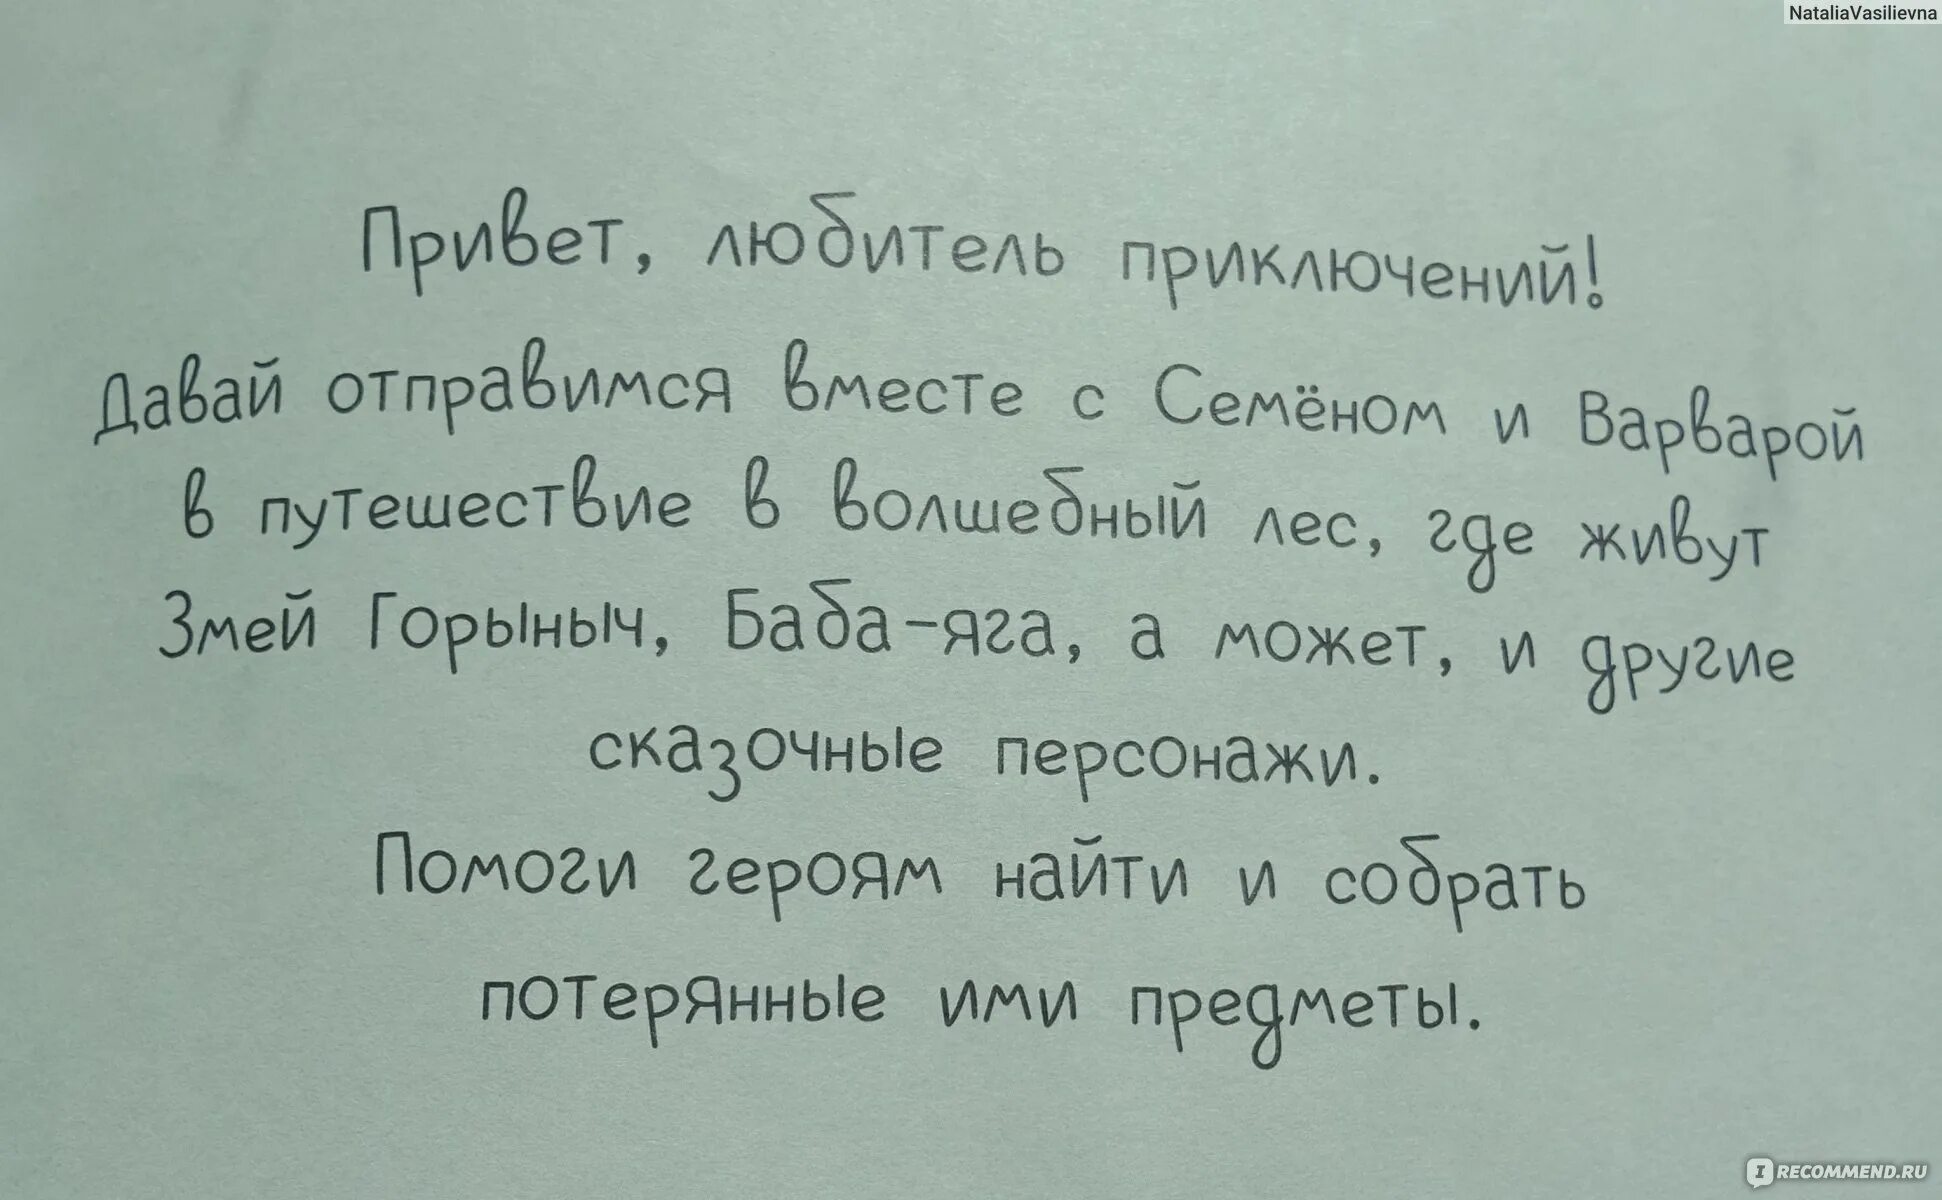 NataliaVasilievna
Привет, любитель приключений!
Давай отправимся вместе с Семёном и Варварой
в путешествие в волшебный лес, где живут
Змей Горыныч, Баба-яга, а может, и другие
сказочные персонажи.
Помоги героям найти и собрать
потерянные ими предметы.
I RECOMMEND.RU